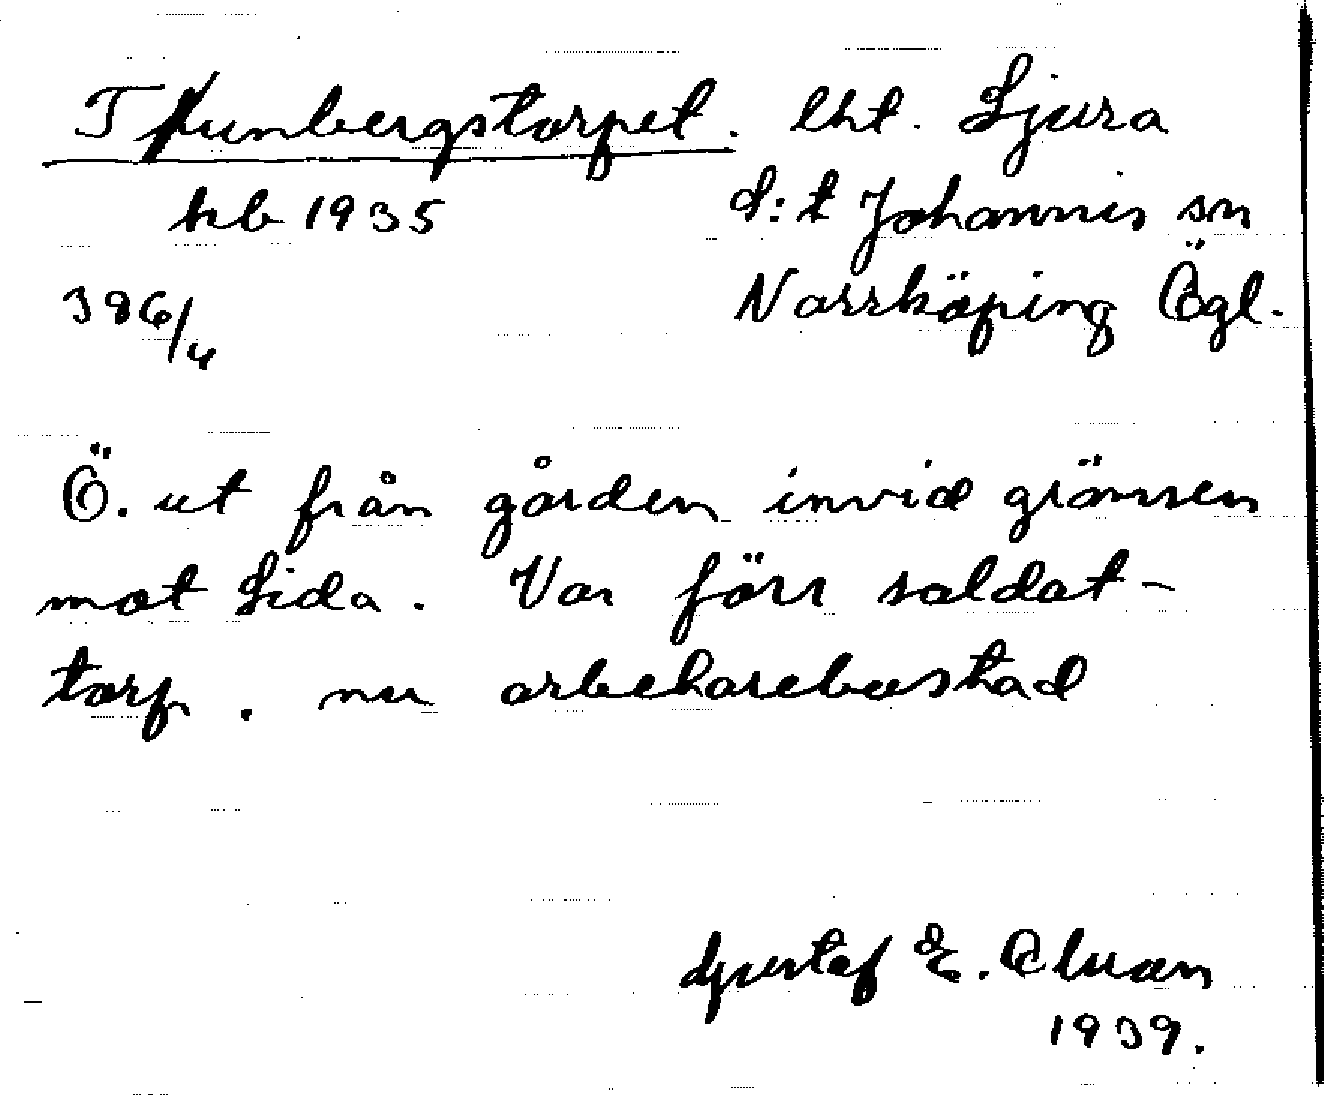 Tunbergstorpet. lht. Ljura
hb 1935 d:t Johannis sn
386/4 Norrköping Ögl.
Ö. ut från gården invid gränsen
mot Lida. Var förr soldat-
torp. nu arbetarebostad
Gustaf E. Alvan
1939.